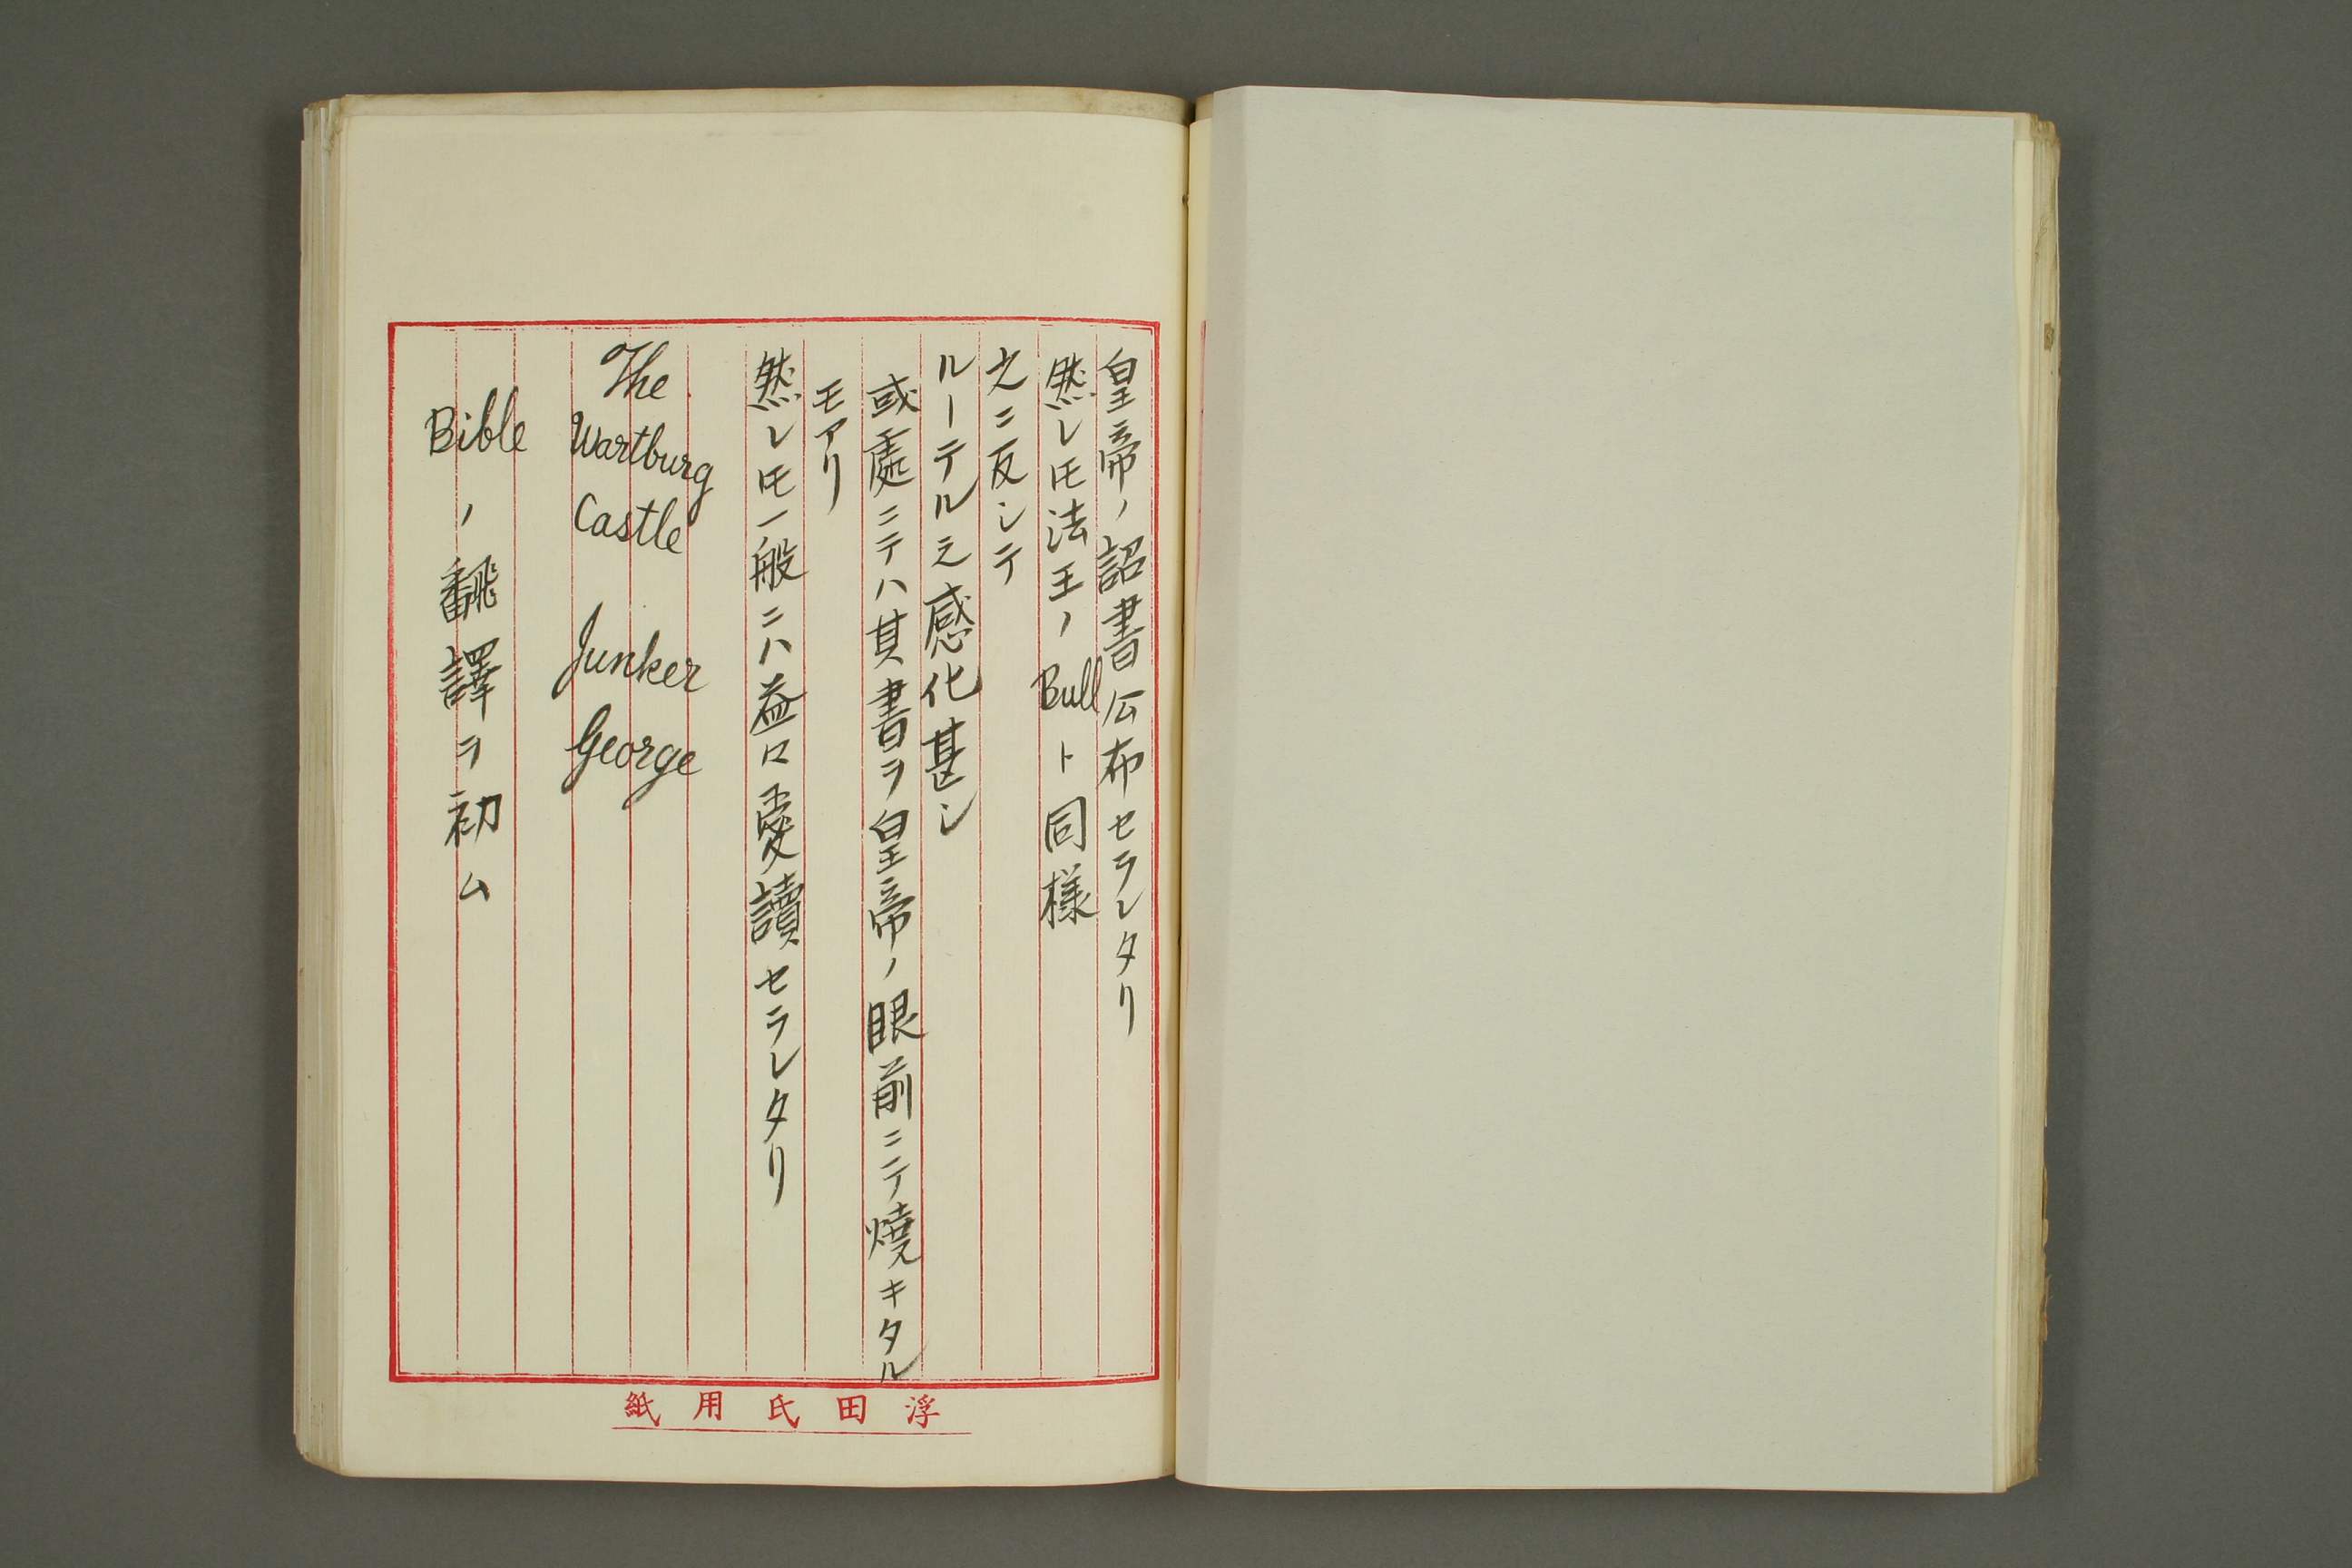 皇帝ノ詔書公布セラレタリ
然レ𪜈法王ノBullト同様
之ニ反シテ
ルーテル之感化甚シ
或處ニテハ其書ヲ皇帝ノ眼前ニテ燒キタル
モアリ
然レ𪜈一般ニハ益〻愛讀セラレタリ
The
Wartburg
Castle
Junker
George
Bibleノ飜譯ヲ初ム
浮田氏用紙